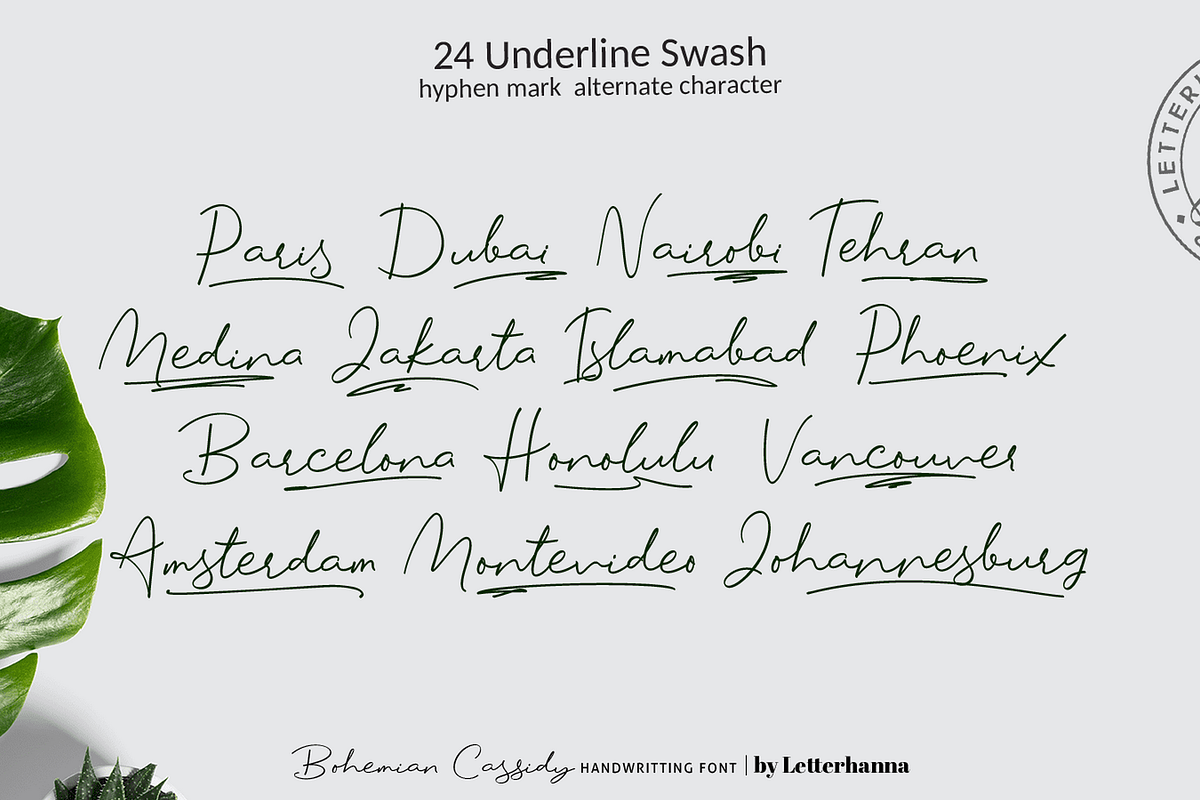 24 Underline Swash
hyphen mark alternate character
Paris Dubai Nairobi Tehran
Medina Jakarta Islamabad Phoenix
Barcelona Honolulu Vancouver
Amsterdam Montevideo Johannesburg
Bohemian Cassidy HANDWRITTING FONT | by Letterhanna